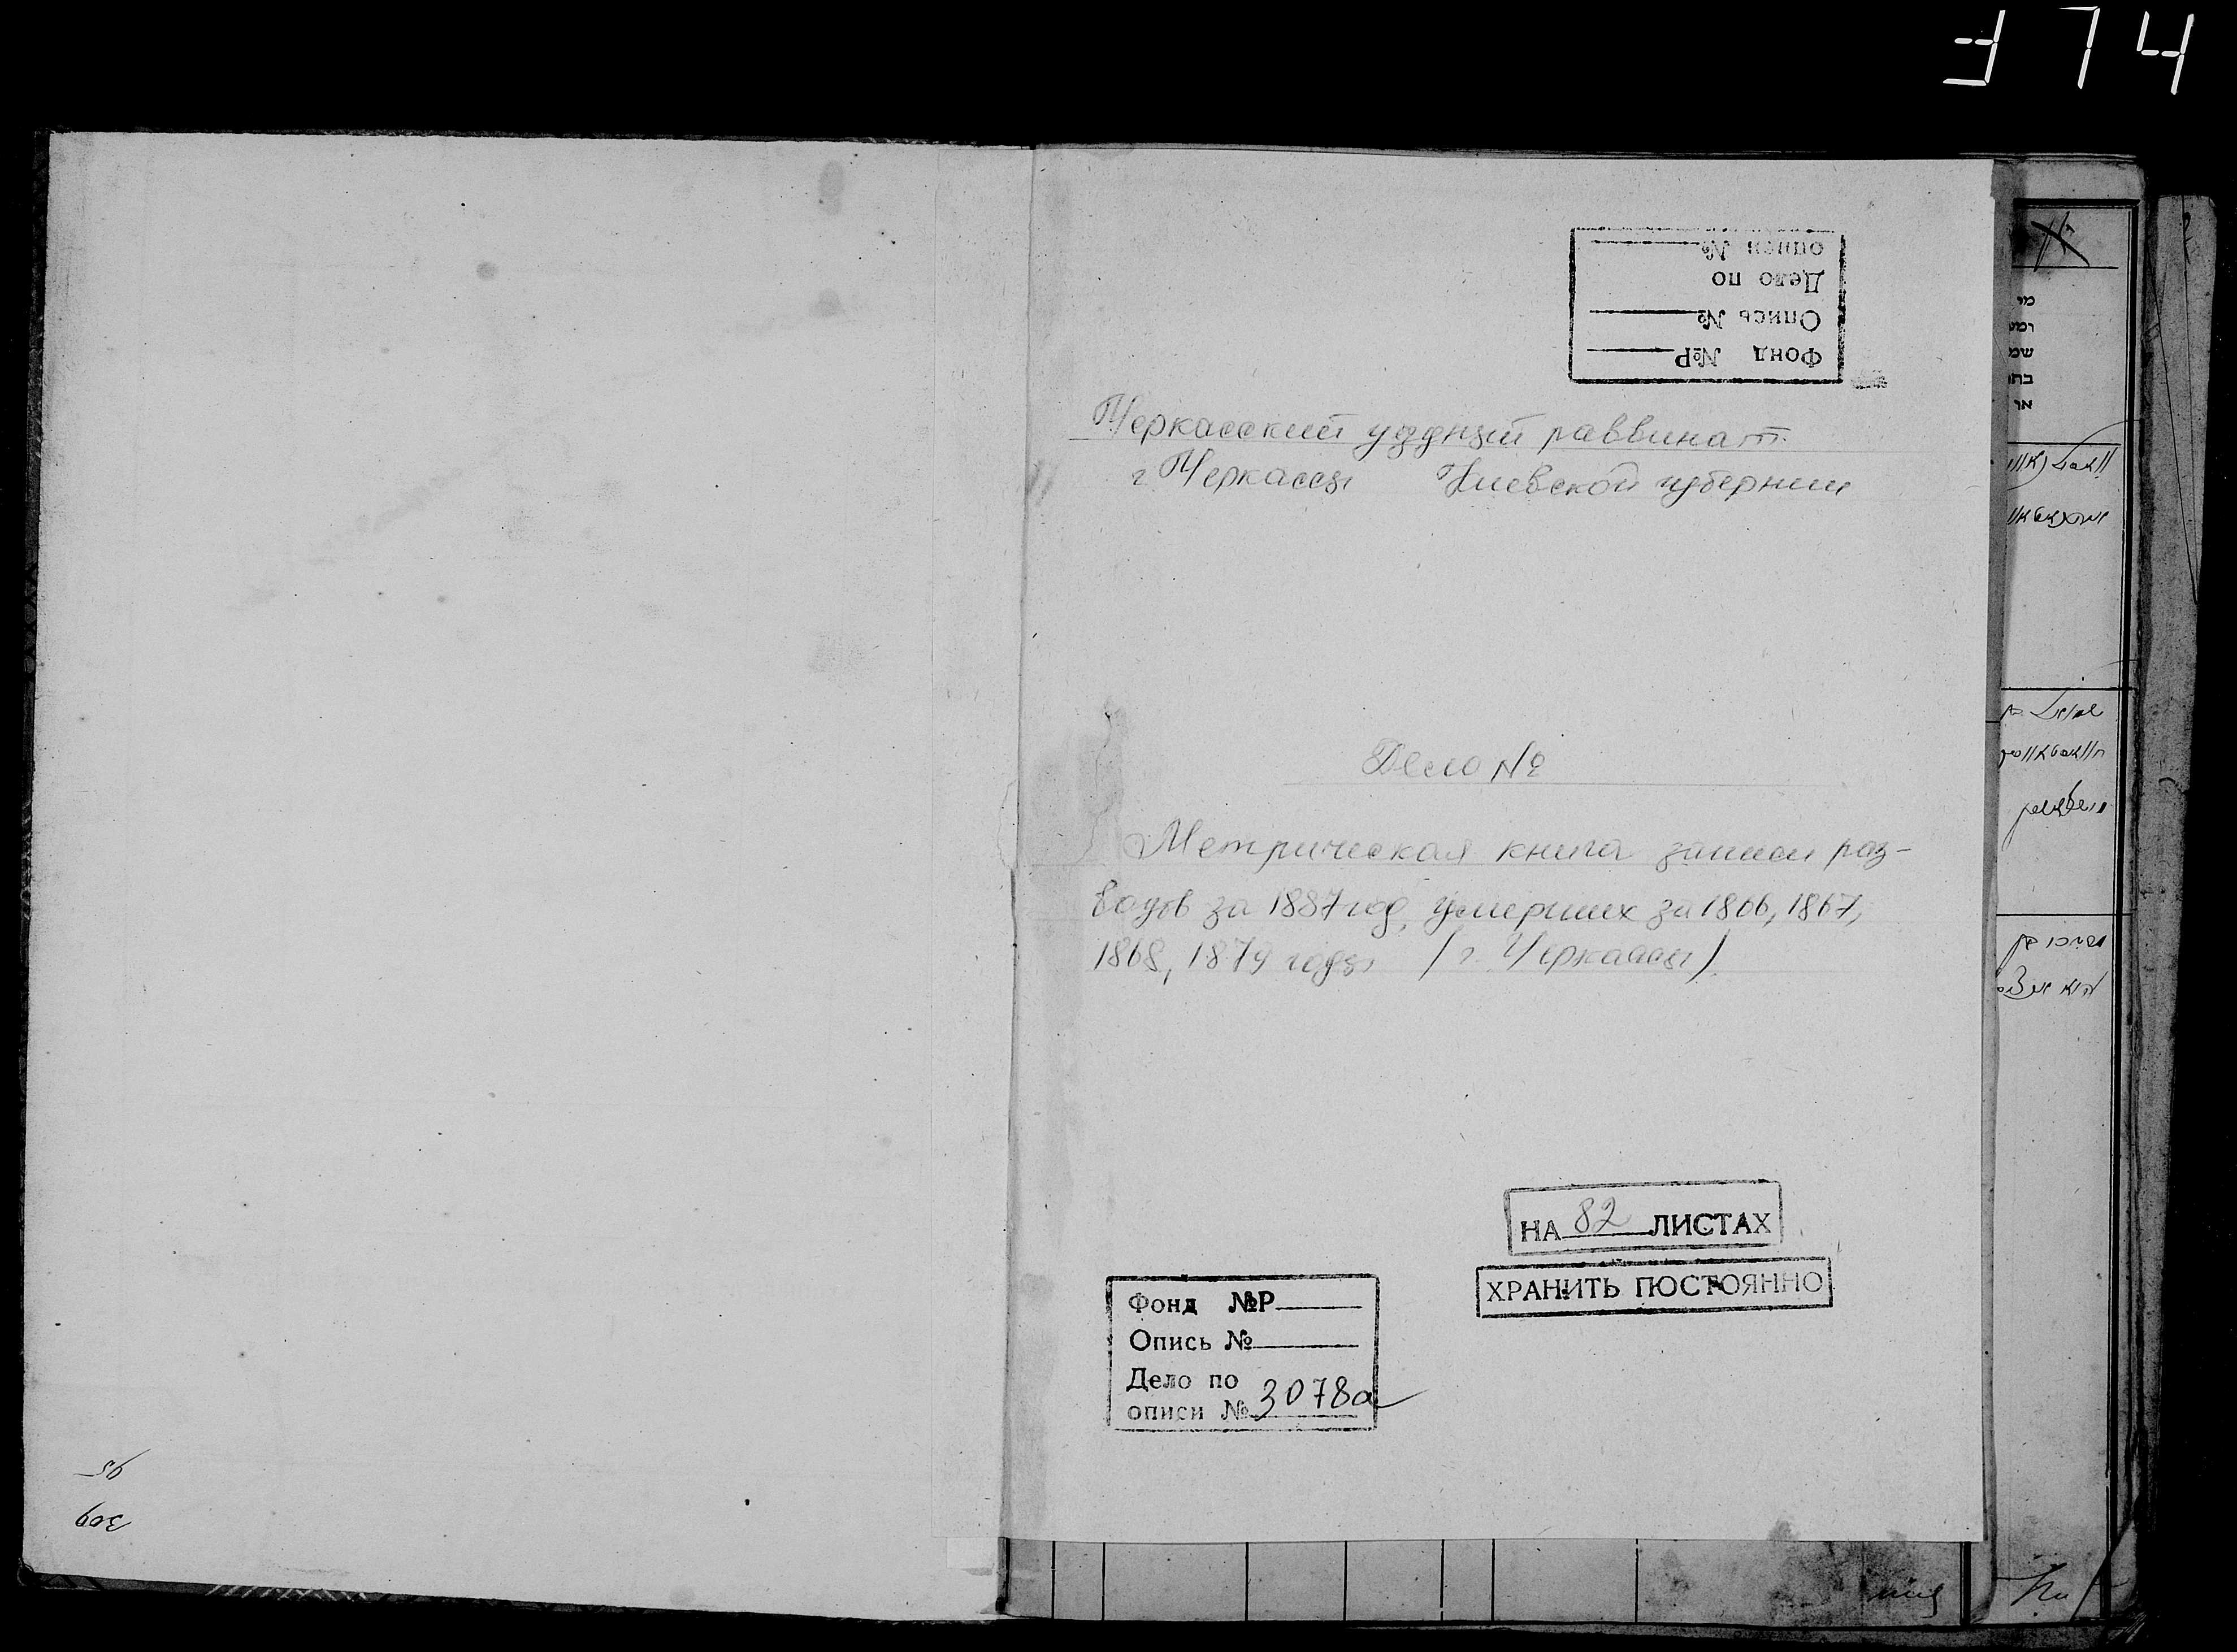 374
описи №
Дело по
Опись №
Фонд №Р
Черкасский уездный раввинат
г. Черкассы Киевской губернии
Дело №
Метрическая книга записи раз-
водов за 1887 год, умерших за 1866, 1867,
1868, 1879 годы (г. Черкассы)
НА 82 ЛИСТАХ
ХРАНИТЬ ПОСТОЯННО
Фонд №Р
Опись №
Дело по
описи № 3078а
מי
ומע
שמ
בתו
או